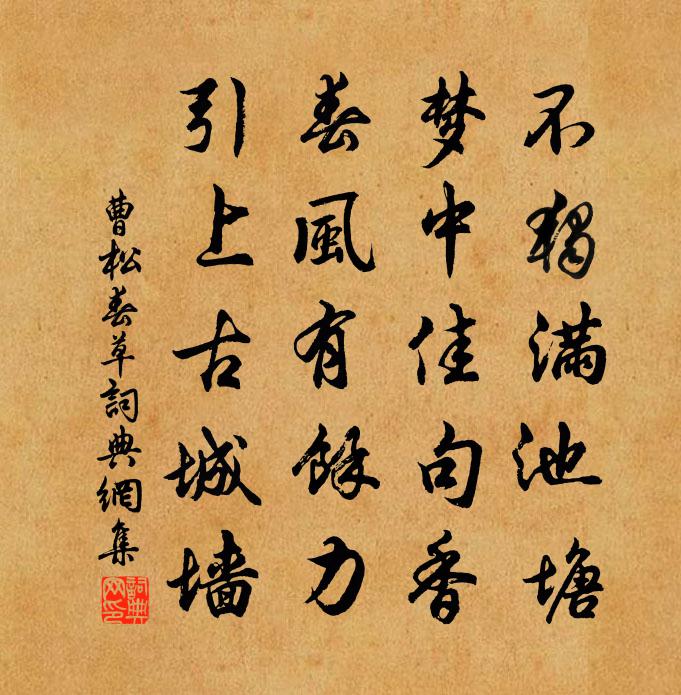 不獨满池塘
梦中佳句香
春風有餘力
引上古城墙
曹松春草詞典網集
詞典網印